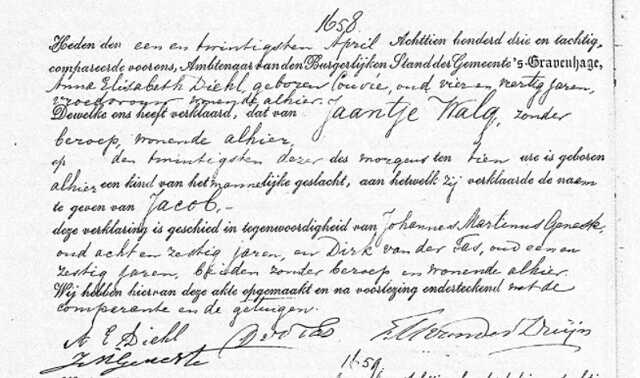 1658.
Heden den een en twintigsten April Achttien honderd drie en tachtig,
compareerde voor ons, Ambtenaar van den Burgerlijken Stand der Gemeente 's-Gravenhage,
Anna Elisabeth Diehl, geboren Couvée, oud vier en veertig jaren,
vroedvrouw wonende alhier.
Dewelke ons heeft verklaard, dat van Jaantje Walg, zonder
beroep, wonende alhier,
op den twintigsten dezer des morgens ten tien ure is geboren
alhier een kind van het mannelijke geslacht, aan hetwelk zij verklaarde de naam
te geven van Jacob.—
deze verklaring is geschied in tegenwoordigheid van Johannes Martinus
oud acht en zestig jaren, en Dirk van der Tas, oud een en
zestig jaren, beiden zonder beroep en wonende alhier.
Wij hebben hiervan deze akte opgemaakt en na voorlezing onderteekend met de
comparente en de getuigen.
A E Diehl
1659.